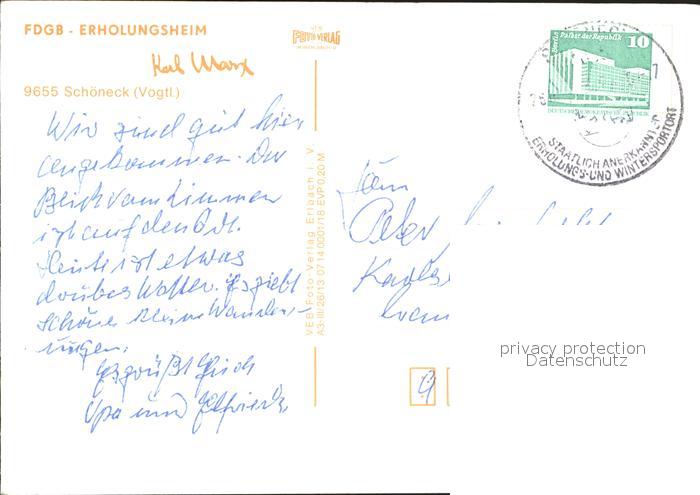 FDGB - ERHOLUNGSHEIM
Karl Marx
9655 Schöneck (Vogtl.)
Wir sind gut hier
angekommen. Der
Blick vom Zimmer
ist auf den Ort.
Heute ist etwas
trübes Wetter. Es giebt
schöne kleine Wander-
ungen.
Es grüßt Euch
Opa und Elfriede
FOTO-VERLAG
VEB Foto-Verlag Erlbach i. V.
A3: III/26/13 07 14 0001/18 EVP 0,20 M
Berlin Palast der Republik
10
DEUTSCHE DEMOKRATISCHE REPUBLIK
STAATLICH ANERKANNTER
ERHOLUNGS- UND WINTERSPORTORT
Fam
Peter
privacy protection
Datenschutz
9